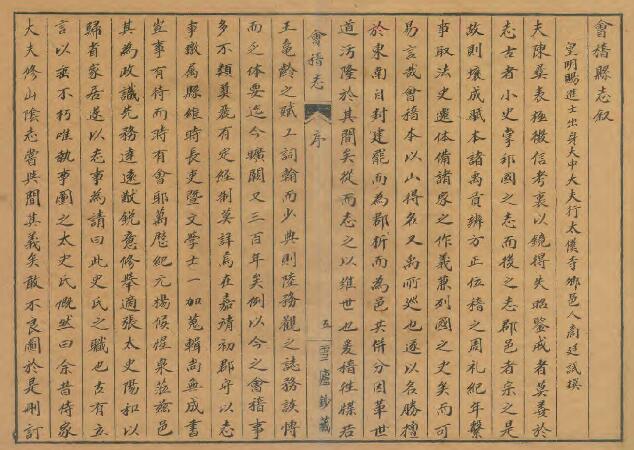 會稽縣志叙
皇明賜進士出身大中大夫行太僕寺卿邑人商廷試撰
夫陳彛表極徵信考衷以鏡得失昭鑒戒者莫善於
志古者小史掌邦國之志而後之志郡邑者宗之是
故則壤成賦本諸禹貢辨方正位稽之周礼紀年繫
事取法史遷体備諸家之作義兼列國之史矣而可
易言哉會稽本以山得名又禹所廵也遂以名勝擅
於東南自封建罷而為郡析而為邑其併分因革世
道汚隆於其間矣從而志之以維世也爰稽徃牒若
會稽志
序
五
雪廬鈔藏
王龜齡之賦工詞翰而少典則陸務觀之誌務談愽
而乏体要迄今曠闕又三百年矣例以今之會稽事
多不類奠麗有定經制莫詳焉在嘉靖初郡守以志
事檄属縣維時長吏暨文學士一加蒐輯尚無成書
豈事有待而時有會耶萬曆紀元楊候惺泉蒞兹邑
其為政識先務達遠猷銳意修舉適張太史陽和以
歸省家居遂以志事為請曰此史氏之職也古有立
言以垂不朽唯執事圖之太史氏慨然曰余昔侍家
大夫修山陰志嘗與聞其義矣敢不良圖於是刪訂